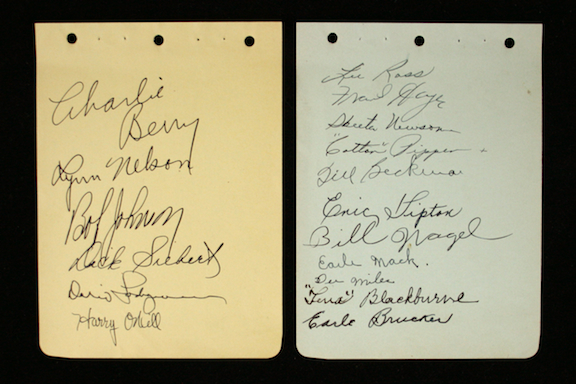 Charlie
Berry
Lynn Nelson
Bob Johnson
Dick Siebert
Dario
Harry O'Neill
Lee Ross
Frank Hayes
Skeeter Newsome
"Cotton" Pippen
Bill Beckman
Eric Tipton
Bill Nagel
Earle Mack.
Dee Miles
"Lena" Blackburne
Earle Brucker